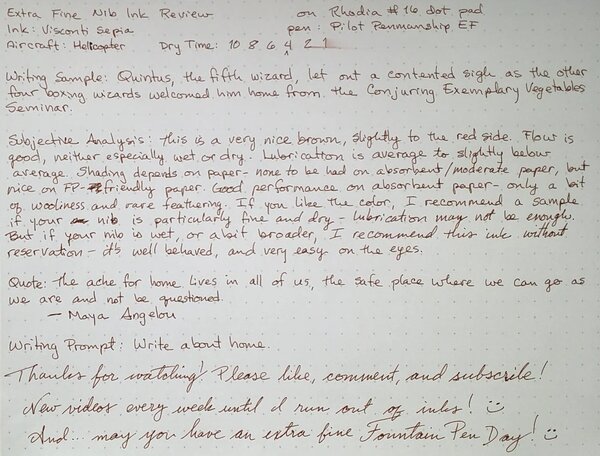 Extra Fine Nib Ink Review on Rhodia #16 dot pad
Ink: Visconti Sepia pen: Pilot Penmanship EF
Aircraft: Helicopter Dry Time: 10 8 6 4 2 1
Writing Sample: Quintus, the fifth wizard, let out a contented sigh as the other
four boxing wizards welcomed him home from the Conjuring Exemplary Vegetables
Seminar.
Subjective Analysis: this is a very nice brown, slightly to the red side. Flow is
good, neither especially wet or dry. Lubrication is average to slightly below
average. Shading depends on paper - none to be had on absorbent/moderate paper, but
nice on FP-friendly paper. Good performance on absorbent paper - only a bit
of wooliness and rare feathering. If you like the color, I recommend a sample
if your nib is particularly fine and dry - lubrication may not be enough.
But if your nib is wet, or a bit broader, I recommend this ink without
reservation - it's well behaved, and very easy on the eyes.
Quote: The ache for home lives in all of us, the safe place where we can go as
we are and not be questioned.
- Maya Angelou
Writing Prompt: Write about home.
Thanks for watching! Please like, comment, and subscribe!
New videos every week until I run out of inks! :)
And... may you have an extra fine Fountain Pen Day! :)